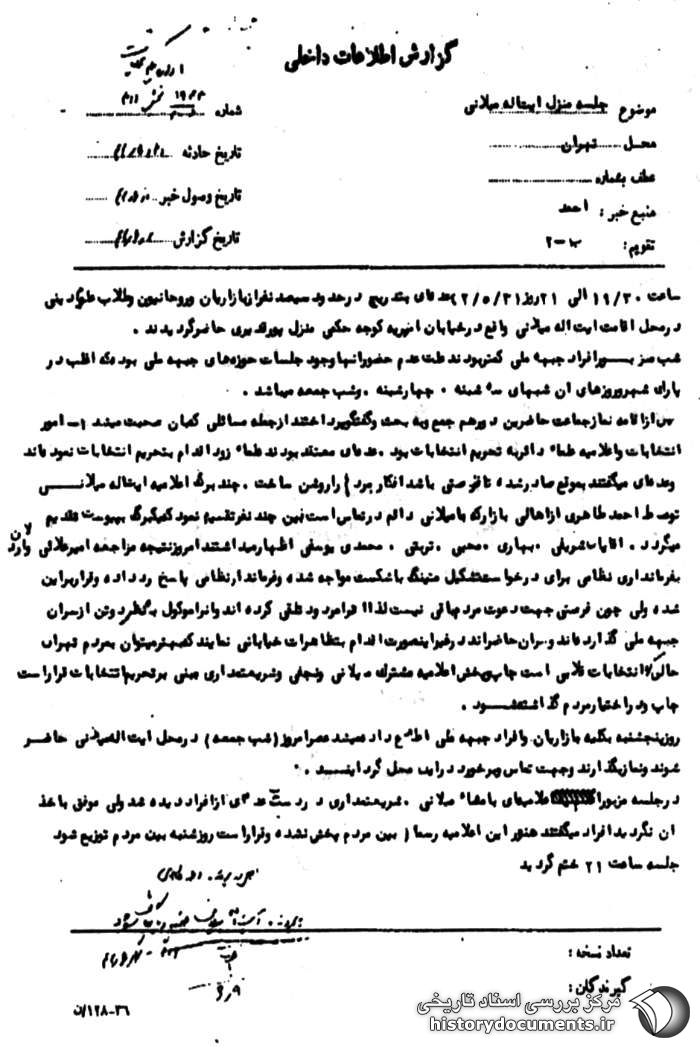 گزارش اطلاعات داخلی
موضوع جلسه منزل ایت‌اله میلانی
محل تهران
عطف بشماره
منبع خبر: احمد
تقویم: ب-۲
شماره
تاریخ حادثه
تاریخ وصول خبر
تاریخ گزارش
ساعت ۱۹/۳۰ الی ۲۱ روز ۲/۵/۳۱ عده‌ای بتدریج در حدود سیصد نفر از بازاریان و روحانیون و طلاب علوم دینی
در محل اقامت ایت‌اله میلانی واقع در خیابان امیریه کوچه حکمی منزل پورقدیری حاضر گردیدند.
شب افراد جبهه ملی کمتر بودند علت عدم حضور انها وجود جلسات حوزه‌های جبهه ملی بوده که اغلب در
شب و روزهای ان شبهای سه شنبه، چهارشنبه، و شب جمعه میباشد.
پس از اقامه نماز جماعت حاضرین دور هم جمع و به بحث و گفتگو پرداختند از جمله مسائلی که بیان صحبت میشد ۱- امور
انتخابات و اعلامیه علماء دائر به تحریم انتخابات بود. عده‌ای معتقد بودند علماء زود اقدام بتحریم انتخابات نموده‌اند
و عده‌ای میگفتند بموقع صادر شده تا فرصتی باشد افکار مردم را روشن ساخت. چند برگ اعلامیه ایت‌اله میلانی
توسط احمد طاهری از اهالی بازار که با میلانی دائم در تماس است بین چند نفر تقسیم نمود که یکبرگ بپیوست تقدیم
میگردد. اقایان شمریلی، بهاری، محبی، تربتی، محمدی یوسفی اظهار میداشتند امروز نتیجه مراجعه امیرعلائی و اردلان
بفرمانداری نظامی برای درخواست تشکیل متینگ با شکست مواجه شده و فرماندار نظامی پاسخ رد داده و قرار بر این
شده ولی چون فرصتی جهت دعوت مردم باقی نیست لذا قرار مردود تلقی کرده‌اند و انرا موکول به نظر دو تن از سران
جبهه ملی گذارده‌اند و سران حاضراند در غیر اینصورت اقدام بتظاهرات خیابانی نمایند که بهتر میتوان بمردم تهران
حالی کرد انتخابات قلابی است چاپ و پخش اعلامیه مشترک میلانی و نجفی و شریعتمداری مبنی بر تحریم انتخابات قرار است
چاپ و در اختیار مردم گذاشته شود.
روز پنجشنبه بکلیه بازاریان و افراد جبهه ملی اطلاع داده میشد عصر امروز (شب جمعه) در محل ایت‌اله میلانی حاضر
شوند و نماز بگذارند و جهت تماس و برخورد در اید محل گرد ایند.
در جلسه مزبور اعلامیه‌ای بامضاء میلانی، شریعتمداری در دست عده‌ای از افراد دیده شد ولی موفق باخذ
ان نگردید افراد میگفتند هنوز این اعلامیه رسماً بین مردم پخش نشده و قرار است روز شنبه بین مردم توزیع شود
جلسه ساعت ۲۱ ختم گردید
تعداد نسخه:
گیرندگان:
۱۲۸-۳۶/ن
مرکز بررسی اسناد تاریخی
historydocuments.ir